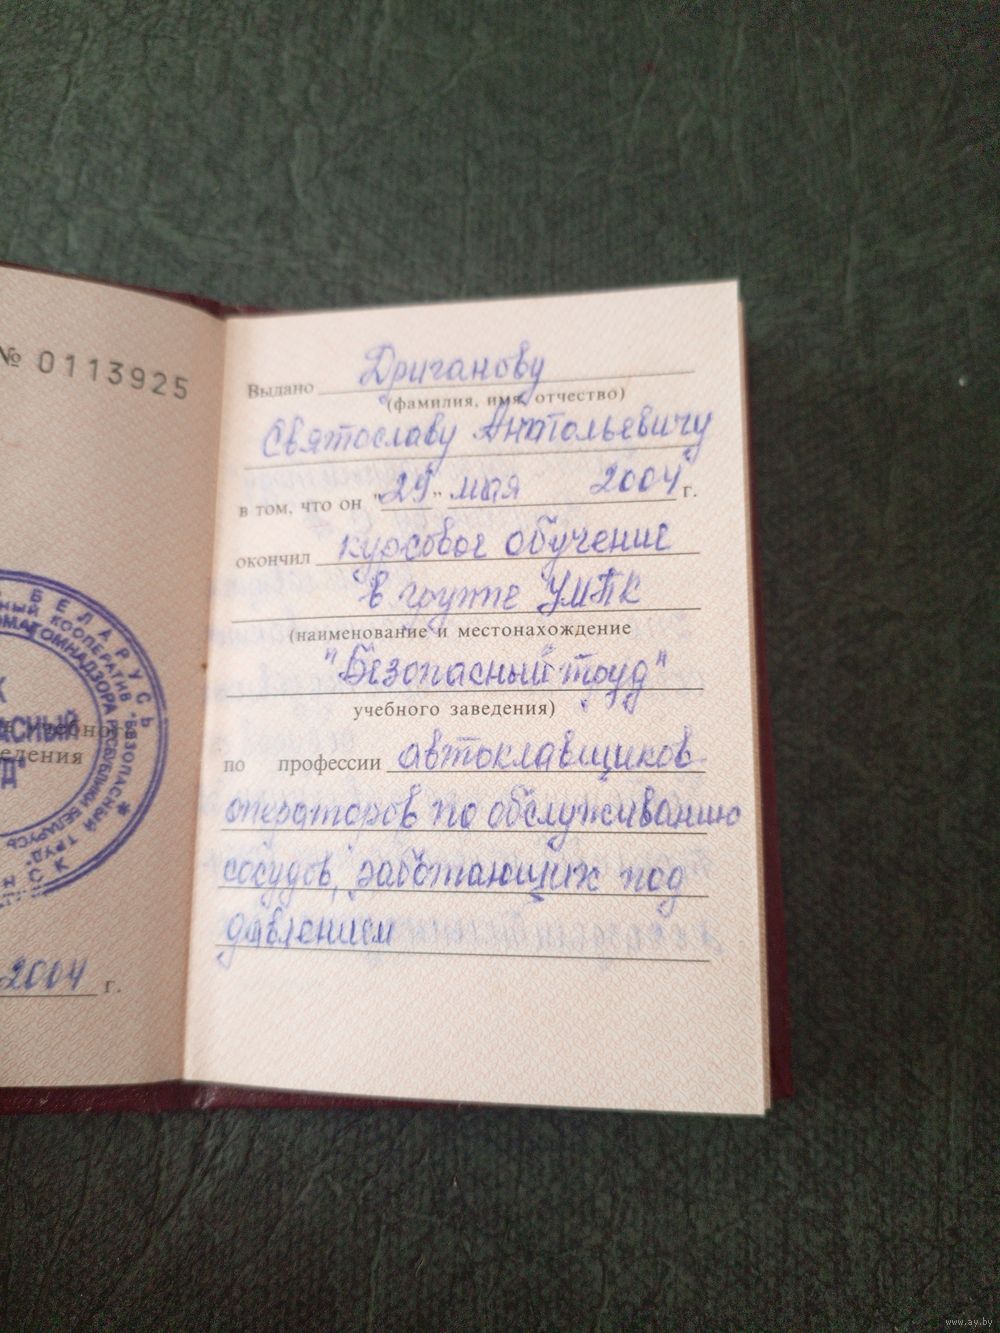 № 0113925
БЕЛАРУСЬ
КООПЕРАТИВ "БЕЗОПАСНЫЙ ТРУД"
РЕСПУБЛИКИ БЕЛАРУСЬ
2004 г.
Выдано Дриганову
(фамилия, имя, отчество)
Святославу Анатольевичу
в том, что он "29" мая 2004 г.
окончил курсовое обучение
в группе УМПК
(наименование и местонахождение
"Безопасный труд"
учебного заведения)
по профессии автоклавщиков
операторов по обслуживанию
сосудов, работающих под
давлением
www.ay.by